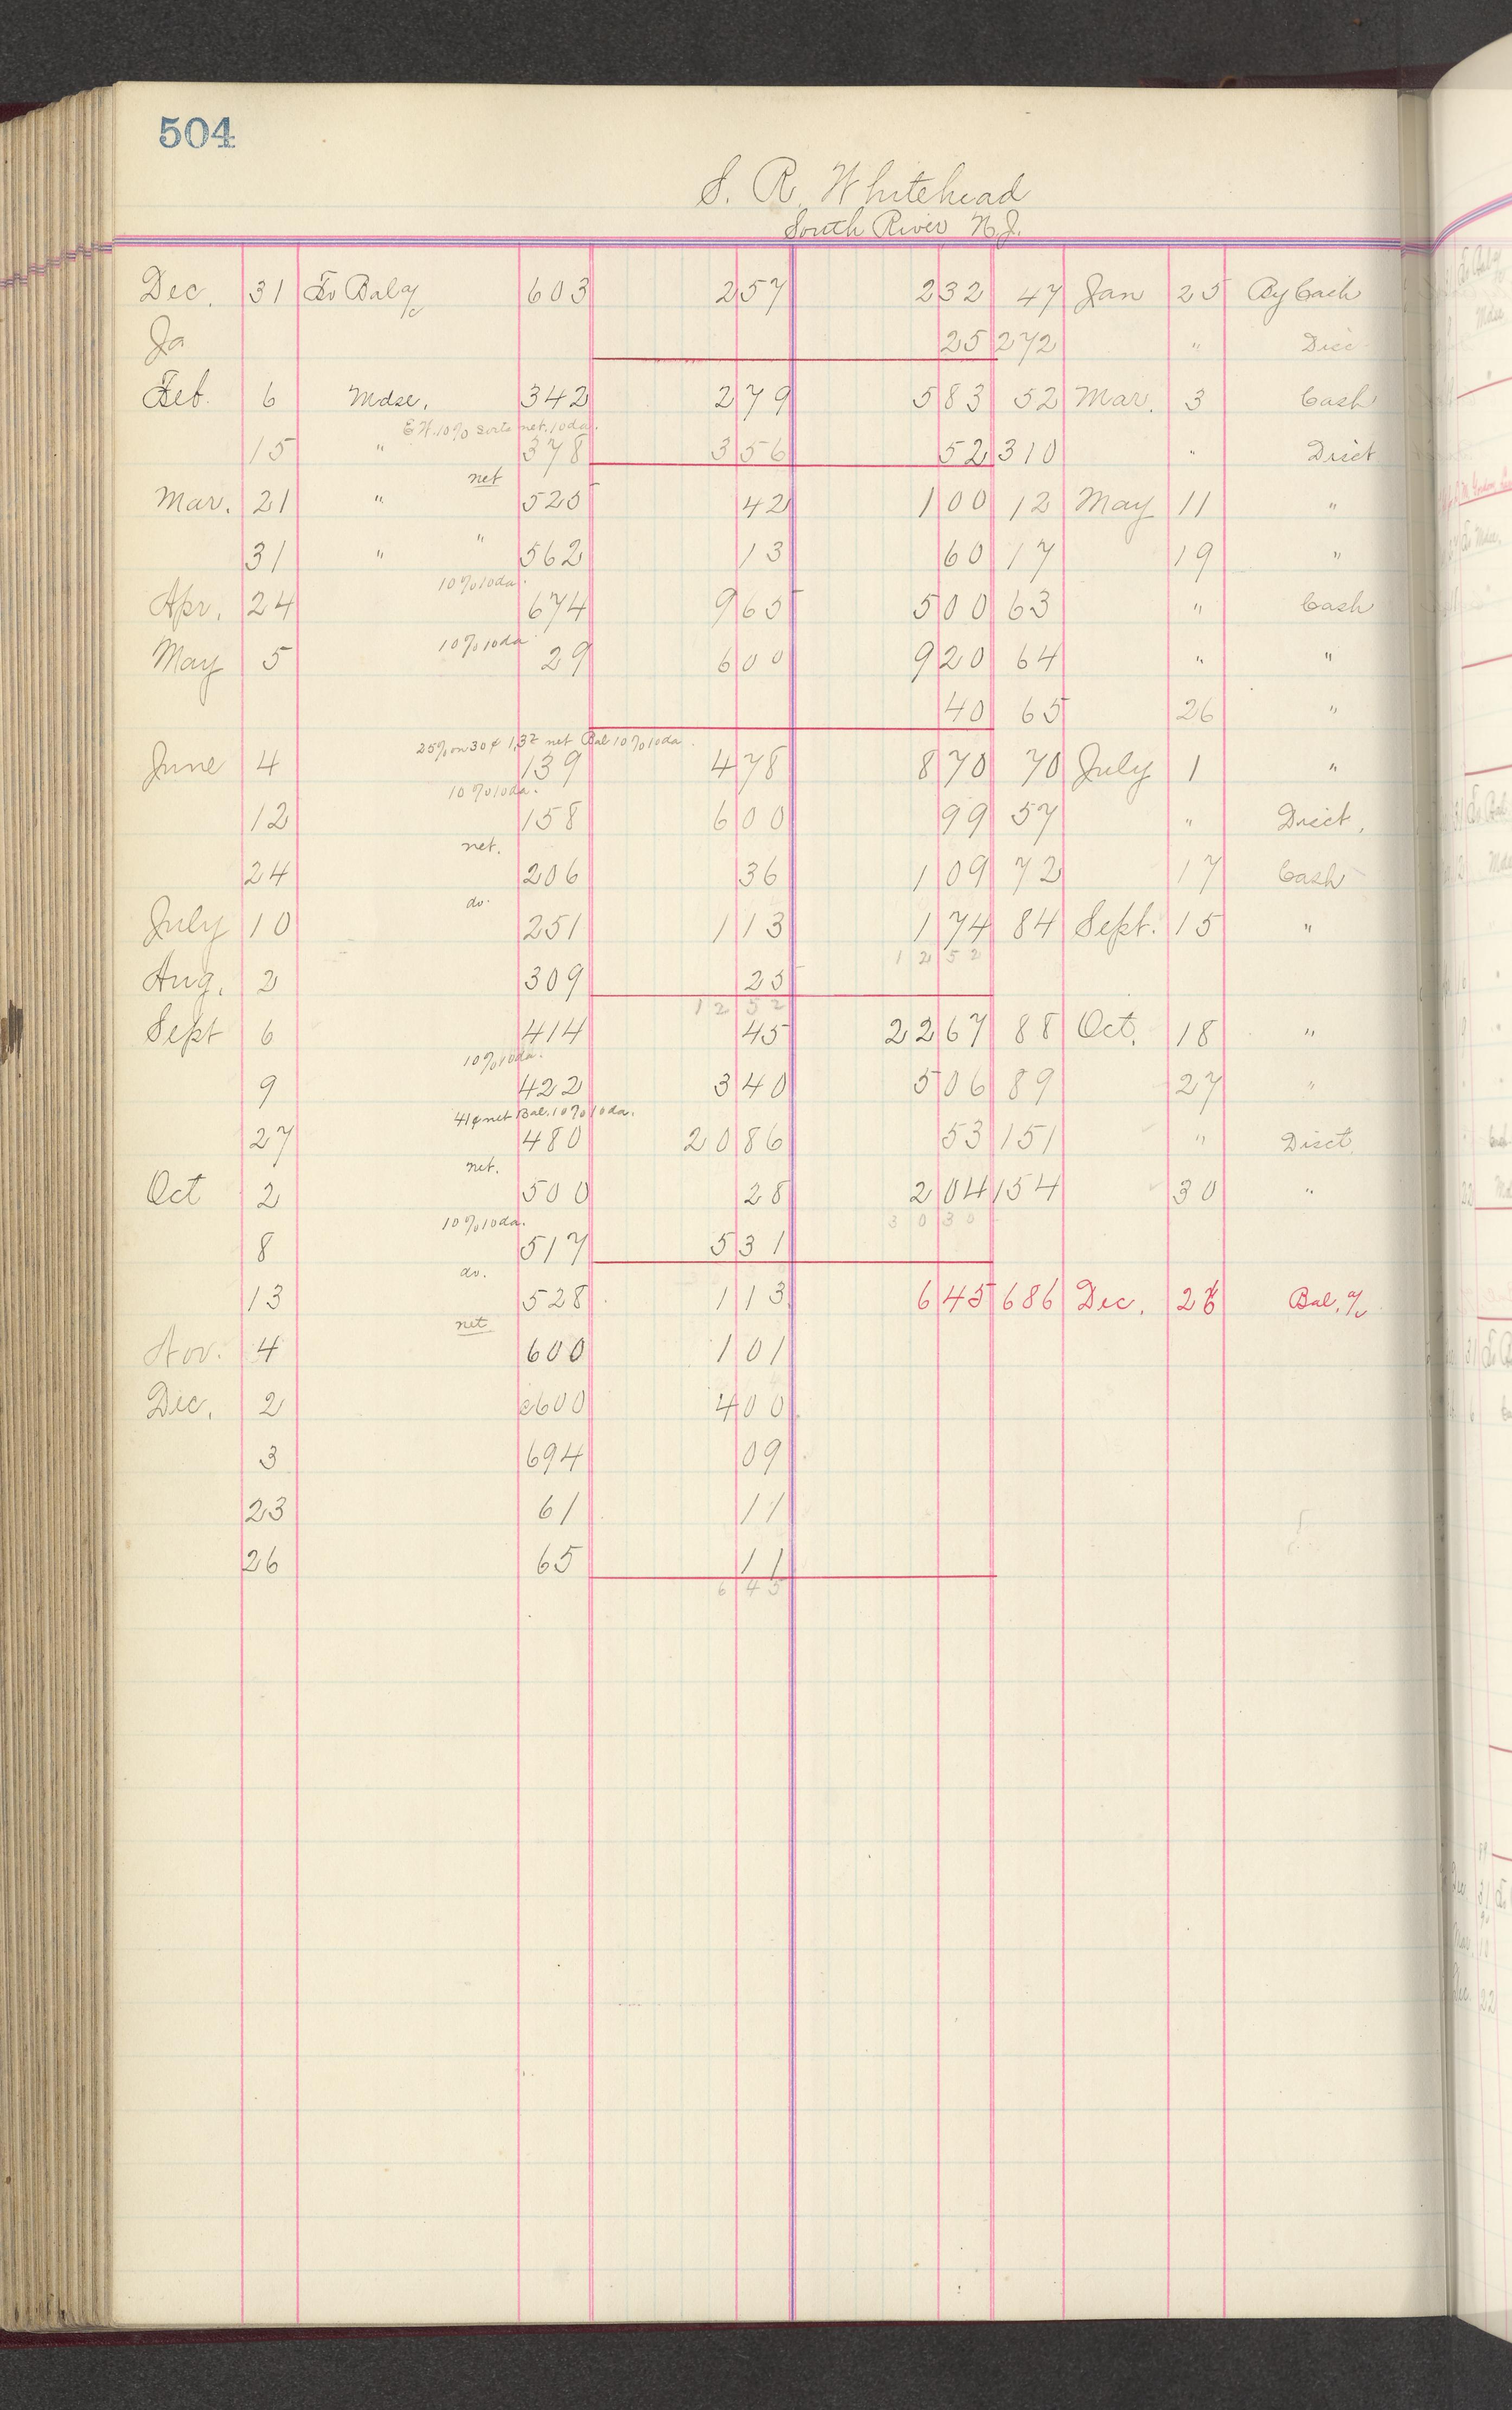 504
S. R. Whitehead
South River N.J.
Dec. 31 To Bal a/c 603 2 57 2 32 47 Jan 25 By Cash
Ja 25 272 " Disc
Feb. 6 Mdse. 342 2 79 5 83 52 Mar. 3 Cash
E.H. 10% sorts net. 10 da.
15 " 378 3 56 52 310 " Disct
net
Mar. 21 " 525 42 1 00 12 May 11 "
31 " " 562 13 60 17 19 "
10% 10 da.
Apr. 24 674 9 65 5 00 63 " Cash
10% 10 da
May 5 29 6 00 9 20 64 " "
40 65 26 "
25% on 30¢ 1.32 net Bal 10% 10 da.
June 4 139 4 78 8 70 70 July 1 "
10% 10 da.
12 158 6 00 99 57 " Disct.
net.
24 206 36 1 09 72 17 Cash
do.
July 10 251 1 13 1 74 84 Sept. 15 "
12 52
Aug. 2 309 25
12 52
Sept 6 414 45 22 67 88 Oct. 18 "
10% 10 da.
9 422 3 40 5 06 89 27 "
41¢ net Bal. 10% 10 da.
27 480 20 86 53 151 " Disct.
net.
Oct 2 500 28 2 04 154 30 "
30 30
10% 10 da.
8 517 5 31
do.
13 528 1 13 6 45 686 Dec. 26 Bal. a/c
net
Nov. 4 600 1 01
Dec. 2 c600 4 00
3 694 09
23 61 11
26 65 11
6 45